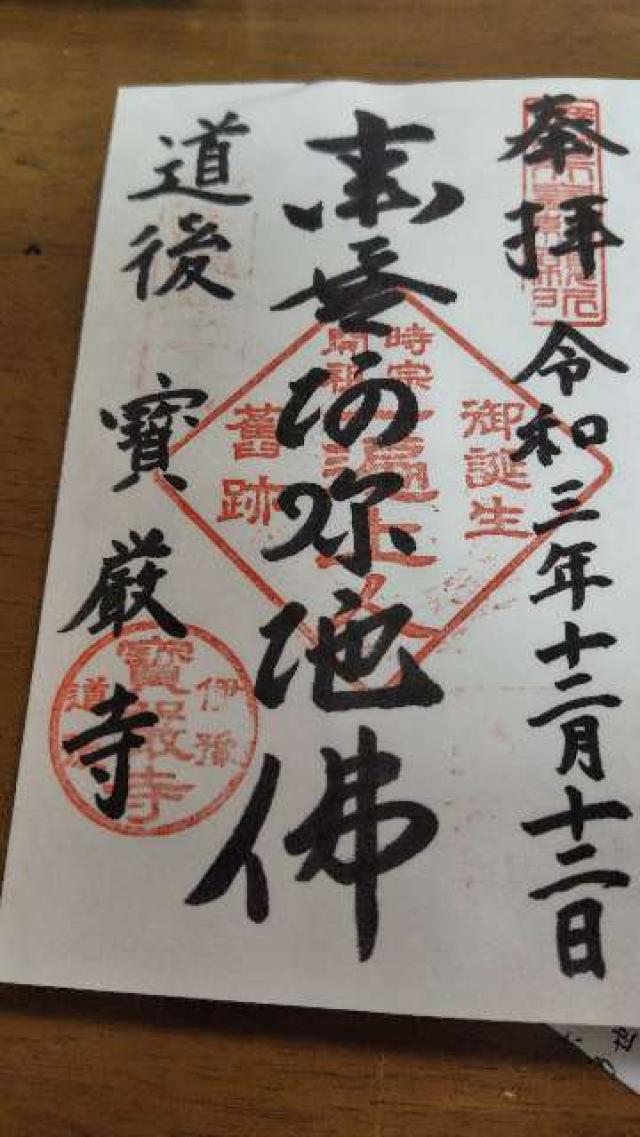 奉拝 令和三年十二月十二日
南無阿弥陀佛
道後 寳厳寺
御誕生
時宗
開祖
一遍上人
舊跡
伊豫
道後
寳嚴寺